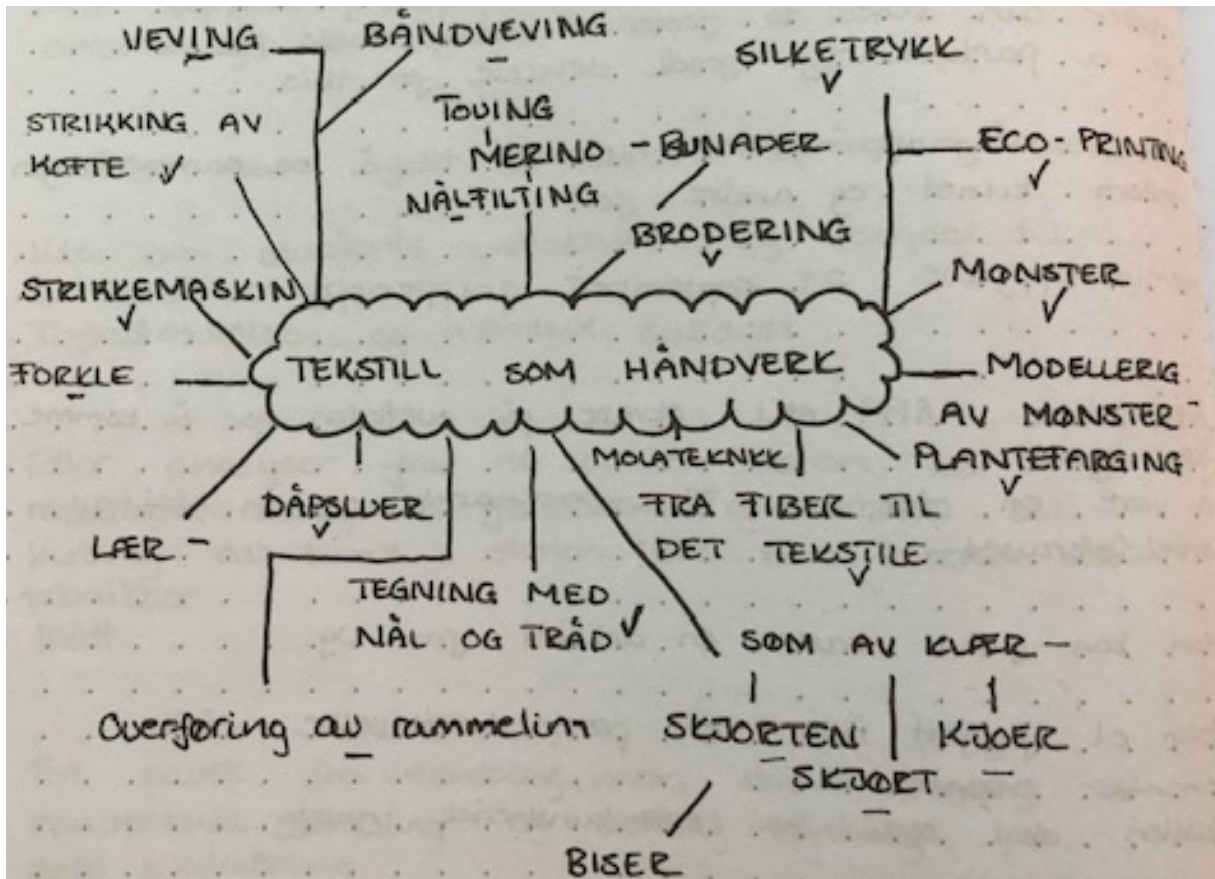 VEVING
BÅNDVEVING
SILKETRYKK
STRIKKING AV
KOFTE
TOVING
MERINO - BUNADER
NÅLFILTING
ECO-PRINTING
BRODERING
STRIKKEMASKIN
MØNSTER
FORKLE
TEKSTILL SOM HÅNDVERK
MODELLERIG
AV MØNSTER-
MOLATEKNKK
PLANTEFARGING
LÆR -
DÅPSLUER
FRA FIBER TIL
DET TEKSTILE
TEGNING MED
NÅL OG TRÅD
SØM AV KLÆR -
Overføring av rammelinn
SKJORTEN
KJOER
SKJØRT
BISER